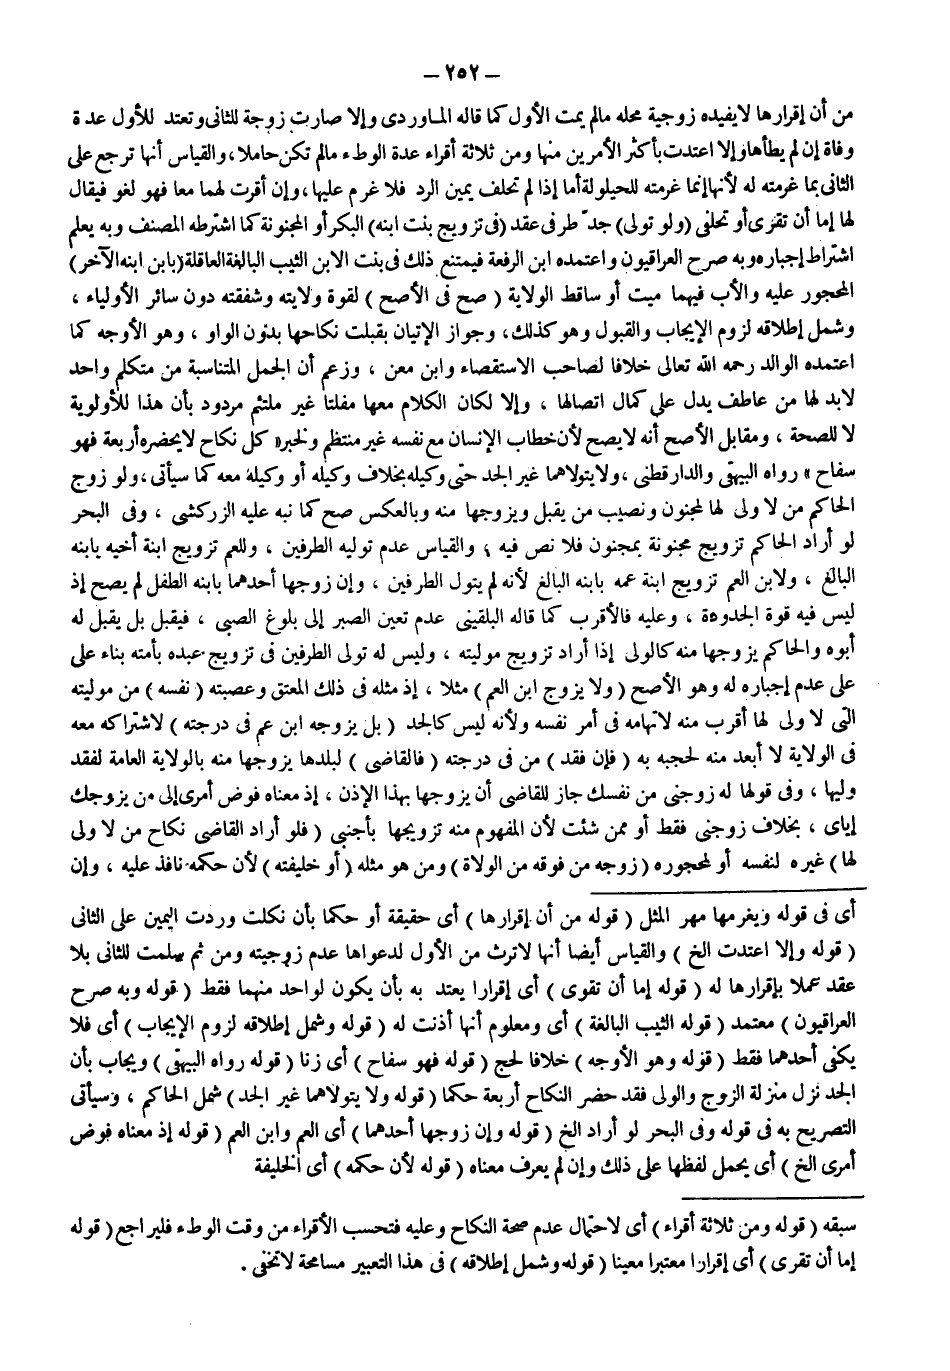 – ٢٥٢ –
من أن إقرارها لايفيده زوجية محله مالم يمت الأول كما قاله المـاوردى وإلا صارت زوجة للثانى وتعتد للأول عدة
وفاة إن لم يطأها وإلا اعتدت بأكثر الأمرين منها ومن ثلاثة أقراء عدة الوطء مالم تكن حاملا، والقياس أنها ترجع على
الثانى بما غرمته له لأنها إنما غرمته للحيلولة أما إذا لم تحلف يمين الرد فلا غرم عليها، وإن أقرت لهما معا فهو لغو فيقال
لها إما أن تقرى أو تحلفى (ولو تولى) جدّ طرفى عقد (فى تزويج بنت ابنه) البكر أو المجنونة كما اشترطه المصنف وبه يعلم
اشتراط إجباره وبه صرح العراقيون واعتمده ابن الرفعة فيمتنع ذلك فى بنت الابن الثيب البالغة العاقلة (بابن ابنه الآخر)
المحجور عليه والأب فيهما ميت أو ساقط الولاية ( صح فى الأصح ) لقوة ولايته وشفقته دون سائر الأولياء ،
وشمل إطلاقه لزوم الإيجاب والقبول وهو كذلك، وجواز الإتيان بقبلت نكاحها بدون الواو ، وهو الأوجه كما
اعتمده الوالد رحمه الله تعالى خلافا لصاحب الاستقصاء وابن معن ، وزعم أن الجمل المتناسبة من متكلم واحد
لابد لها من عاطف يدل على كمال اتصالها ، وإلا لكان الكلام معها مفلتا غير ملتئم مردود بأن هذا للأولوية
لا للصحة ، ومقابل الأصح أنه لايصح لأن خطاب الإنسان مع نفسه غير منتظم ولخبر « كل نكاح لايحضره أربعة فهو
سفاح » رواه البيهقى والدارقطنى ، ولايتولاهما غير الجد حتى وكيله بخلاف وكيليه أو وكيله معه كما سيأتى، ولو زوج
الحاكم من لا ولى لها لمجنون ونصيب من يقبل ويزوجها منه وبالعكس صح كما نبه عليه الزركشى ، وفى البحر
لو أراد الحاكم تزويج مجنونة بمجنون فلا نص فيه ، والقياس عدم توليه الطرفين ، وللعم تزويج ابنة أخيه بابنه
البالغ ، ولابن العم تزويج ابنة عمه بابنه البالغ لأنه لم يتول الطرفين ، وإن زوجها أحدهما بابنه الطفل لم يصح إذ
ليس فيه قوة الجدودة ، وعليه فالأقرب كما قاله البلقينى عدم تعين الصبر إلى بلوغ الصبى ، فيقبل بل يقبل له
أبوه والحاكم يزوجها منه كالولى إذا أراد تزويج موليته ، وليس له تولى الطرفين فى تزويج عبده بأمته بناء على
على عدم إجباره له وهو الأصح ( ولا يزوج ابن العم ) مثلا ، إذ مثله فى ذلك المعتق وعصبته ( نفسه ) من موليته
التى لا ولى لها أقرب منه لاتهامه فى أمر نفسه ولأنه ليس كالجد ( بل يزوجه ابن عم فى درجته ) لاشتراكه معه
فى الولاية لا أبعد منه لحجبه به ( فإن فقد ) من فى درجته ( فالقاضى ) لبلدها يزوجها منه بالولاية العامة لفقد
وليها ، وفى قولها له زوجنى من نفسك جاز للقاضى أن يزوجها بهذا الإذن ، إذ معناه فوض أمرى إلى من يزوجك
إياى ، بخلاف زوجنى فقط أو ممن شئت لأن المفهوم منه تزويجها بأجنبى ( فلو أراد القاضى نكاح من لا ولى
لها ) غيره لنفسه أو لمحجوره ( زوجه من فوقه من الولاة ) ومن هو مثله ( أو خليفته ) لأن حكمه نافذ عليه ، وإن
أى فى قوله ويغرمها مهر المثل ( قوله من أن إقرارها ) أى حقيقة أو حكما بأن نكلت وردت اليمين على الثانى
( قوله وإلا اعتدت الخ ) والقياس أيضا أنها لاترث من الأول لدعواها عدم زوجيته ومن ثم سلمت للثانى بلا
عقد عملا بإقرارها له ( قوله إما أن تقوى ) أى إقرارا يعتد به بأن يكون لواحد منهما فقط ( قوله وبه صرح
العراقيون ) معتمد ( قوله الثيب البالغة ) أى ومعلوم أنها أذنت له ( قوله وشمل إطلاقه لزوم الإيجاب ) أى فلا
يكفى أحدهما فقط ( قوله وهو الأوجه ) خلافا لحج ( قوله فهو سفاح ) أى زنا ( قوله رواه البيهقى ) ويجاب بأن
الجد نزل منزلة الزوج والولى فقد حضر النكاح أربعة حكما ( قوله ولا يتولاهما غير الجد ) شمل الحاكم ، وسيأتى
التصريح به فى قوله وفى البحر لو أراد الخ ( قوله وإن زوجها أحدهما ) أى العم وابن العم ( قوله إذ معناه فوض
أمرى الخ ) أى يحمل لفظها على ذلك وإن لم يعرف معناه ( قوله لأن حكمه ) أى الخليفة
سبقه ( قوله ومن ثلاثة أقراء ) أى لاحتمال عدم صحة النكاح وعليه فتحسب الأقراء من وقت الوطء فليراجع ( قوله
إما أن تقرى ) أى إقرارا معتبرا معينا ( قوله وشمل إطلاقه ) فى هذا التعبير مسامحة لاتخفى .